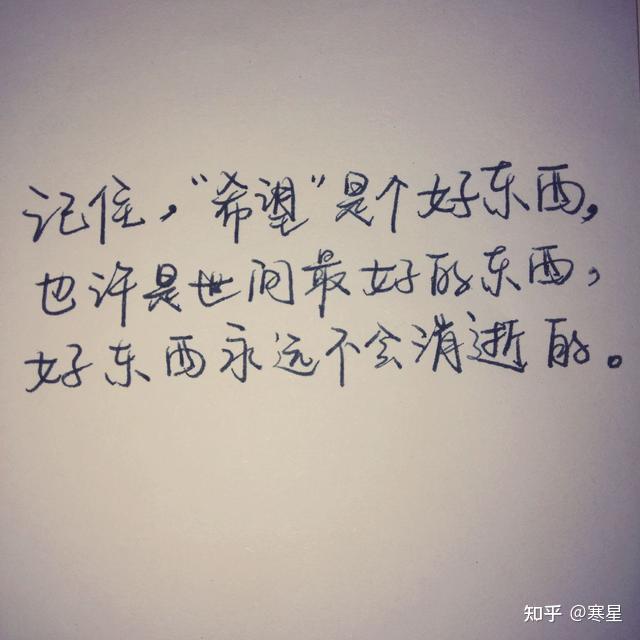 记住，“希望”是个好东西，
也许是世间最好的东西，
好东西永远不会消逝的。
知乎 @寒星